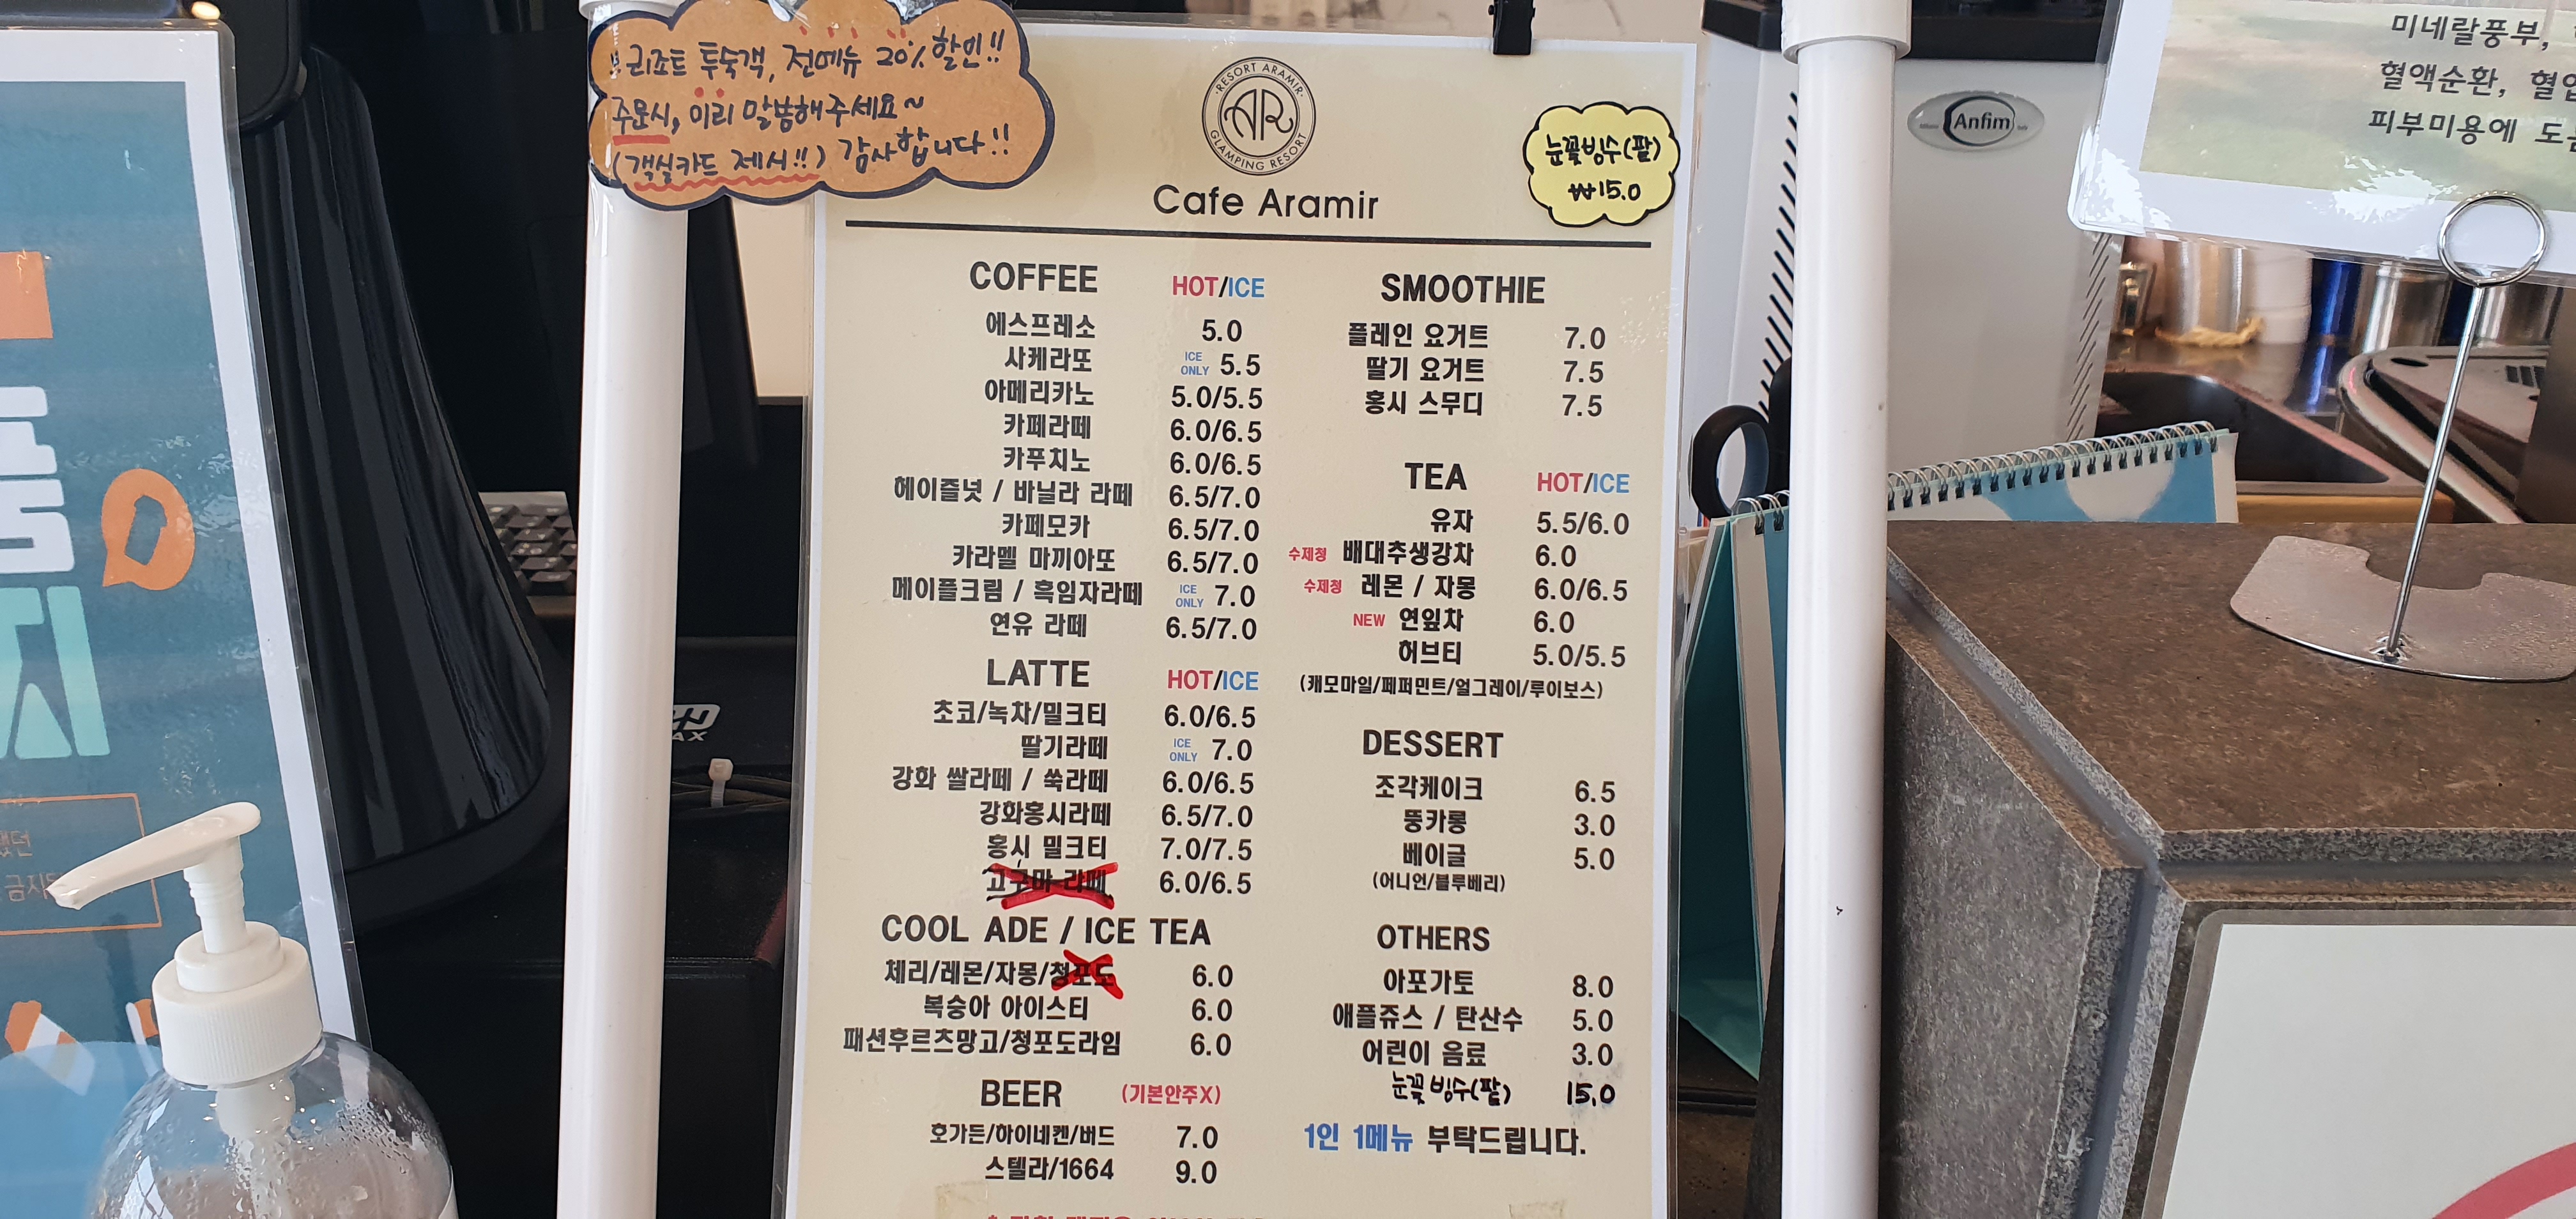 !! 리조트 투숙객, 전메뉴 20% 할인!!
주문시, 미리 말씀해주세요~
(객실카드 제시!!) 감사합니다!!
RESORT ARAMIR
AR
GLAMPING RESORT
Cafe Aramir
눈꽃빙수(팥)
₩15.0
COFFEE HOT/ICE
에스프레소 5.0
사케라또 ICE ONLY 5.5
아메리카노 5.0/5.5
카페라떼 6.0/6.5
카푸치노 6.0/6.5
헤이즐넛 / 바닐라 라떼 6.5/7.0
카페모카 6.5/7.0
카라멜 마끼아또 6.5/7.0
메이플크림 / 흑임자라떼 ICE ONLY 7.0
연유 라떼 6.5/7.0
LATTE HOT/ICE
초코/녹차/밀크티 6.0/6.5
딸기라떼 ICE ONLY 7.0
강화 쌀라떼 / 쑥라떼 6.0/6.5
강화홍시라떼 6.5/7.0
홍시 밀크티 7.0/7.5
고구마 라떼 6.0/6.5
COOL ADE / ICE TEA
체리/레몬/자몽/청포도 6.0
복숭아 아이스티 6.0
패션후르츠망고/청포도라임 6.0
BEER (기본안주X)
호가든/하이네켄/버드 7.0
스텔라/1664 9.0
SMOOTHIE
플레인 요거트 7.0
딸기 요거트 7.5
홍시 스무디 7.5
TEA HOT/ICE
유자 5.5/6.0
수제청 배대추생강차 6.0
수제청 레몬 / 자몽 6.0/6.5
NEW 연잎차 6.0
허브티 5.0/5.5
(캐모마일/페퍼민트/얼그레이/루이보스)
DESSERT
조각케이크 6.5
뚱카롱 3.0
베이글 5.0
(어니언/블루베리)
OTHERS
아포가토 8.0
애플쥬스 / 탄산수 5.0
어린이 음료 3.0
눈꽃빙수(팥) 15.0
1인 1메뉴 부탁드립니다.
Anfim
미네랄풍부,
혈액순환,
피부미용에